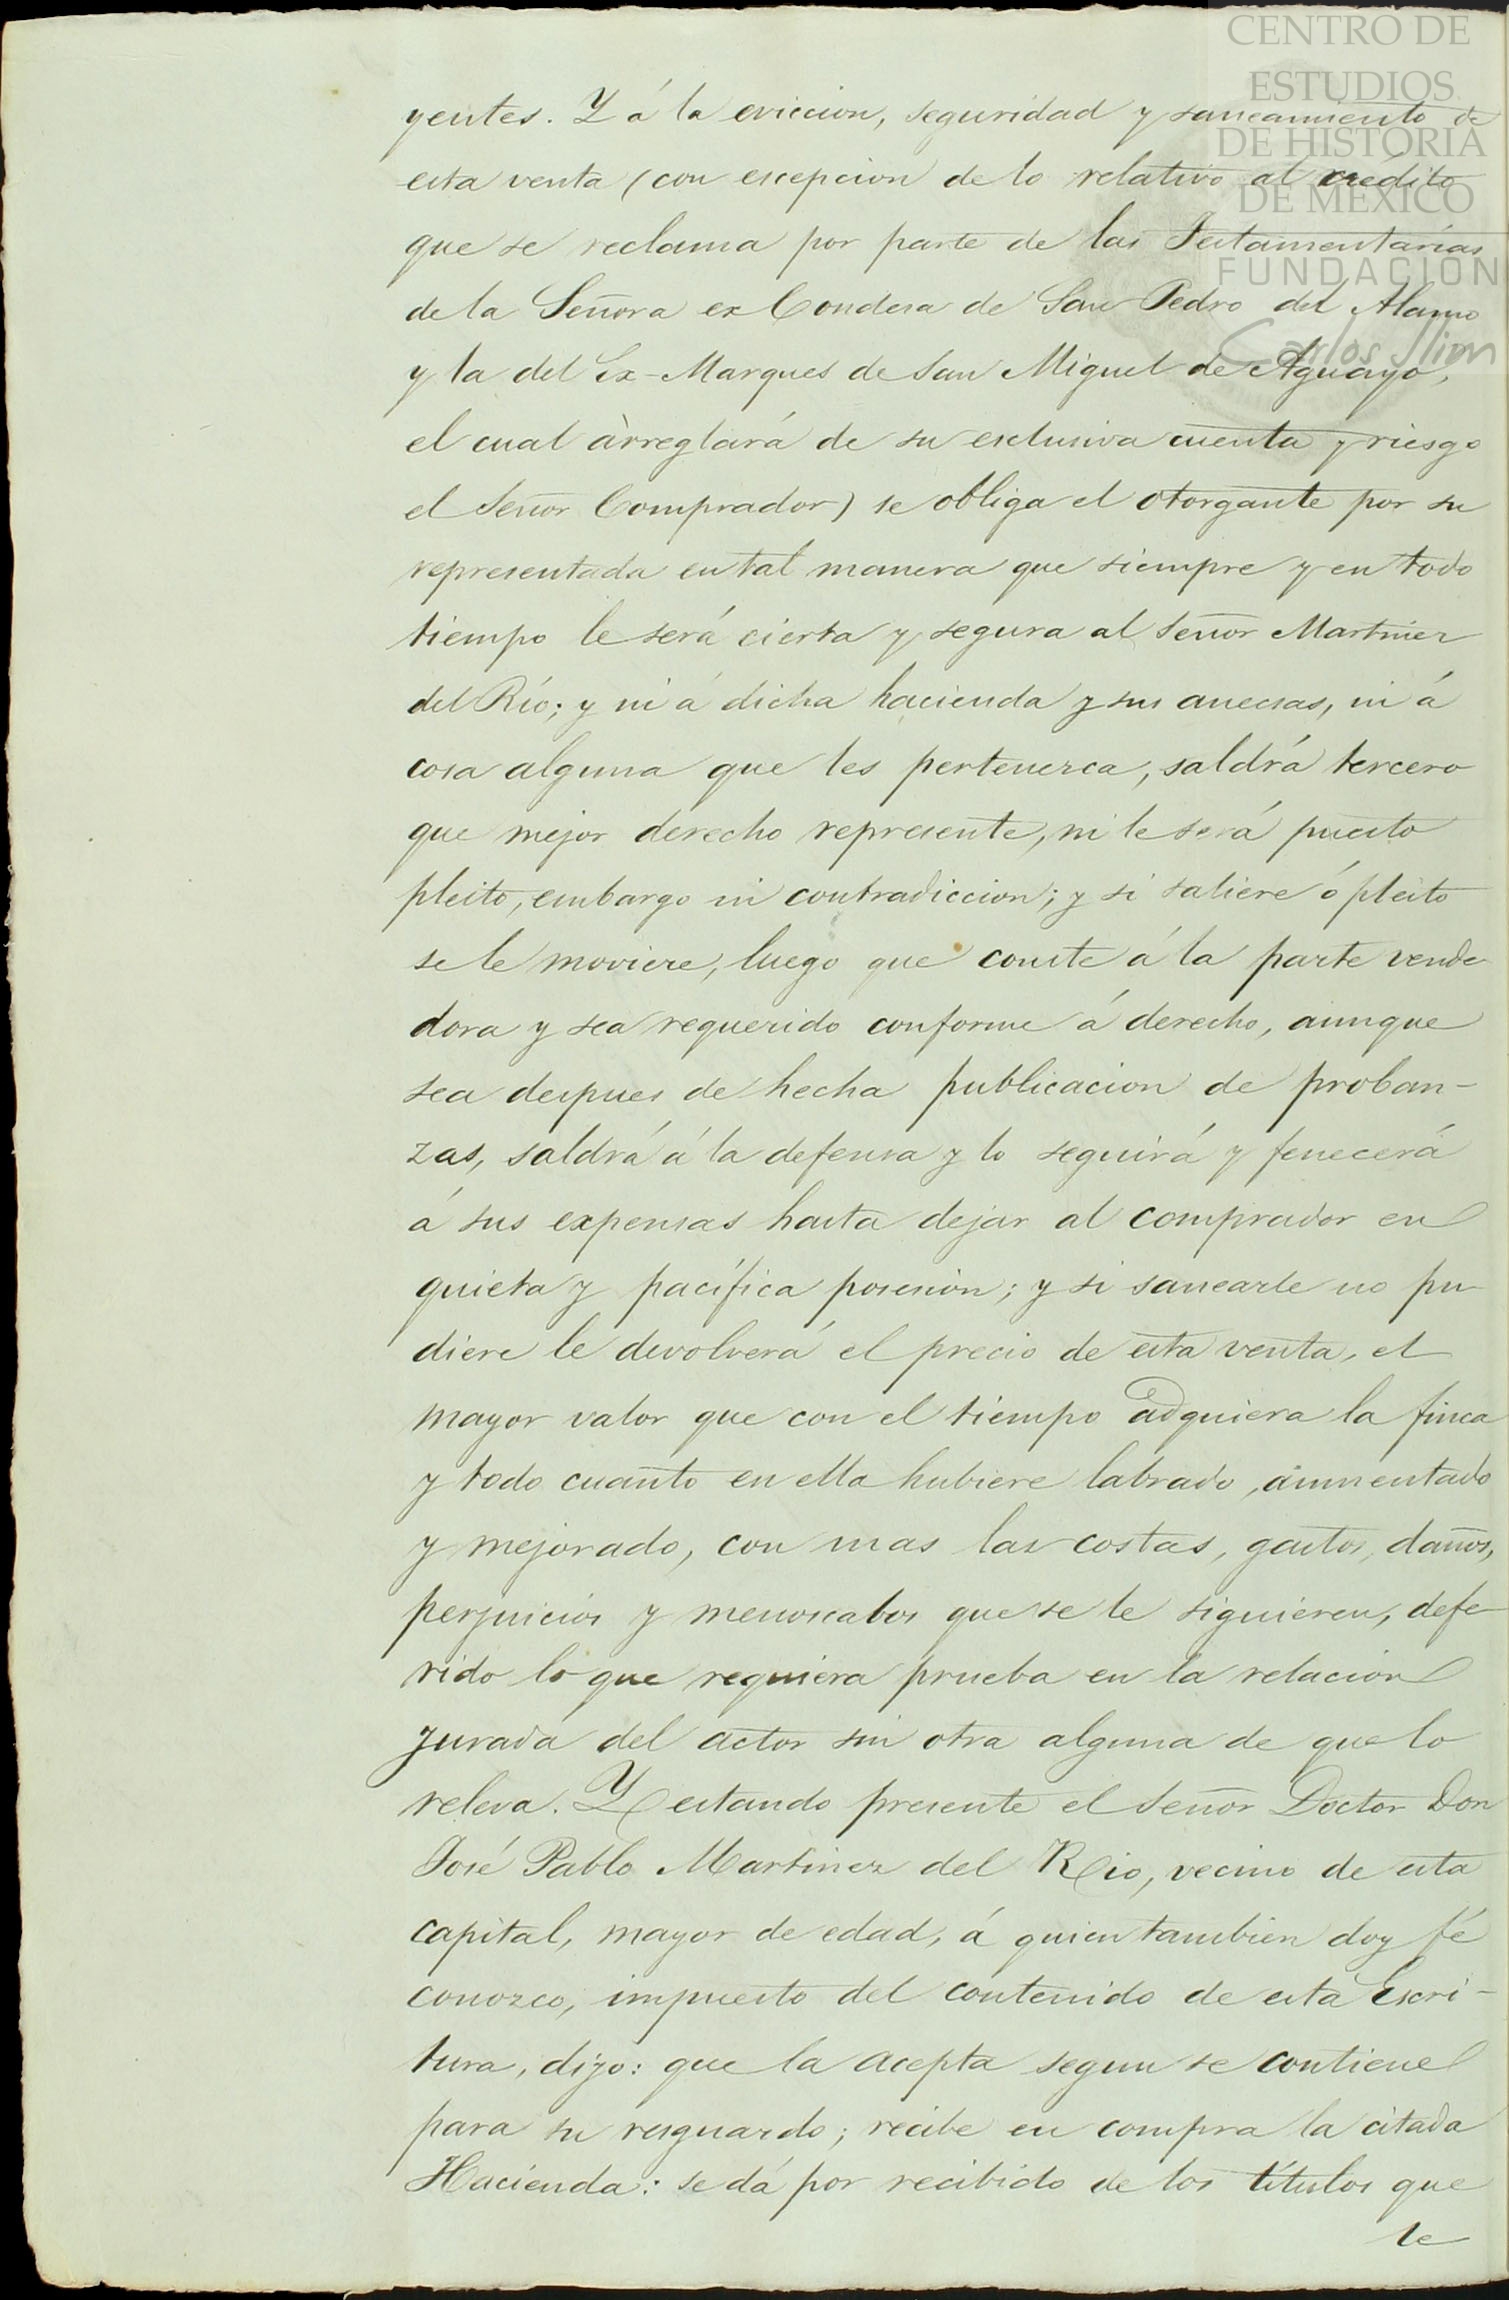 CENTRO DE
ESTUDIOS
DE HISTORIA
DE MÉXICO
FUNDACIÓN
Carlos Slim
yentes. Y á la eviccion, seguridad y saneamiento de
esta venta (con escepcion de lo relativo al crédito
que se reclama por parte de las Testamentarías
de la Señora ex Condesa de San Pedro del Alamo
y la del Ex-Marques de San Miguel de Aguayo,
el cual àrreglará de su esclusiva cuenta y riesgo
el Señor Comprador) se obliga el otorgante por su
representada en tal manera que siempre y en todo
tiempo le será cierta y segura al Señor Martinez
del Río; y ni á dicha hacienda y sus anecsas, ni á
cosa alguna que les pertenezca, saldrá tercero
que mejor derecho represente, ni le será puesto
pleito, embargo ni contradiccion; y si saliere ó pleito
se le moviere, luego que conste á la parte vende
dora y sea requerido conforme á derecho, aunque
sea despues de hecha publicacion de proban-
zas, saldrá á la defensa y lo seguirá y fenecerá
á sus expensas hasta dejar al comprador en
quieta y pacífica posesion; y si sanearle no pu
diere le devolverá el precio de esta venta, el
mayor valor que con el tiempo adquiera la finca
y todo cuanto en ella hubiere labrado, aumentado
y mejorado, con mas las costas, gastos, daños,
perjuicios y menoscabos que se le siguieren, defe-
rido lo que requiera prueba en la relacion
jurada del actor sin otra alguna de que lo
releva. Y estando presente el Señor Doctor Don
José Pablo Martinez del Rio, vecino de esta
capital, mayor de edad, á quien tambien doy fé
conozco, impuesto del contenido de esta Escri-
tura, dijo: que la acepta segun se contiene
para su resguardo; recibe en compra la citada
Hacienda: se dá por recibido de los títulos que
le